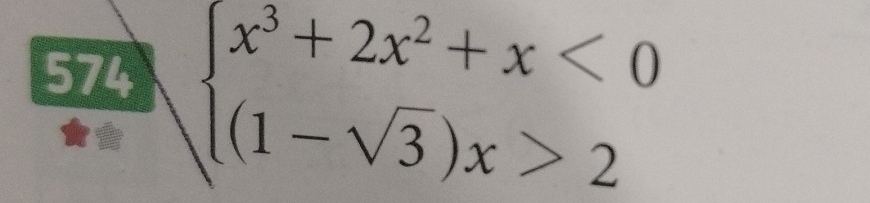 574
x³ + 2x² + x < 0
(1 − √3)x > 2